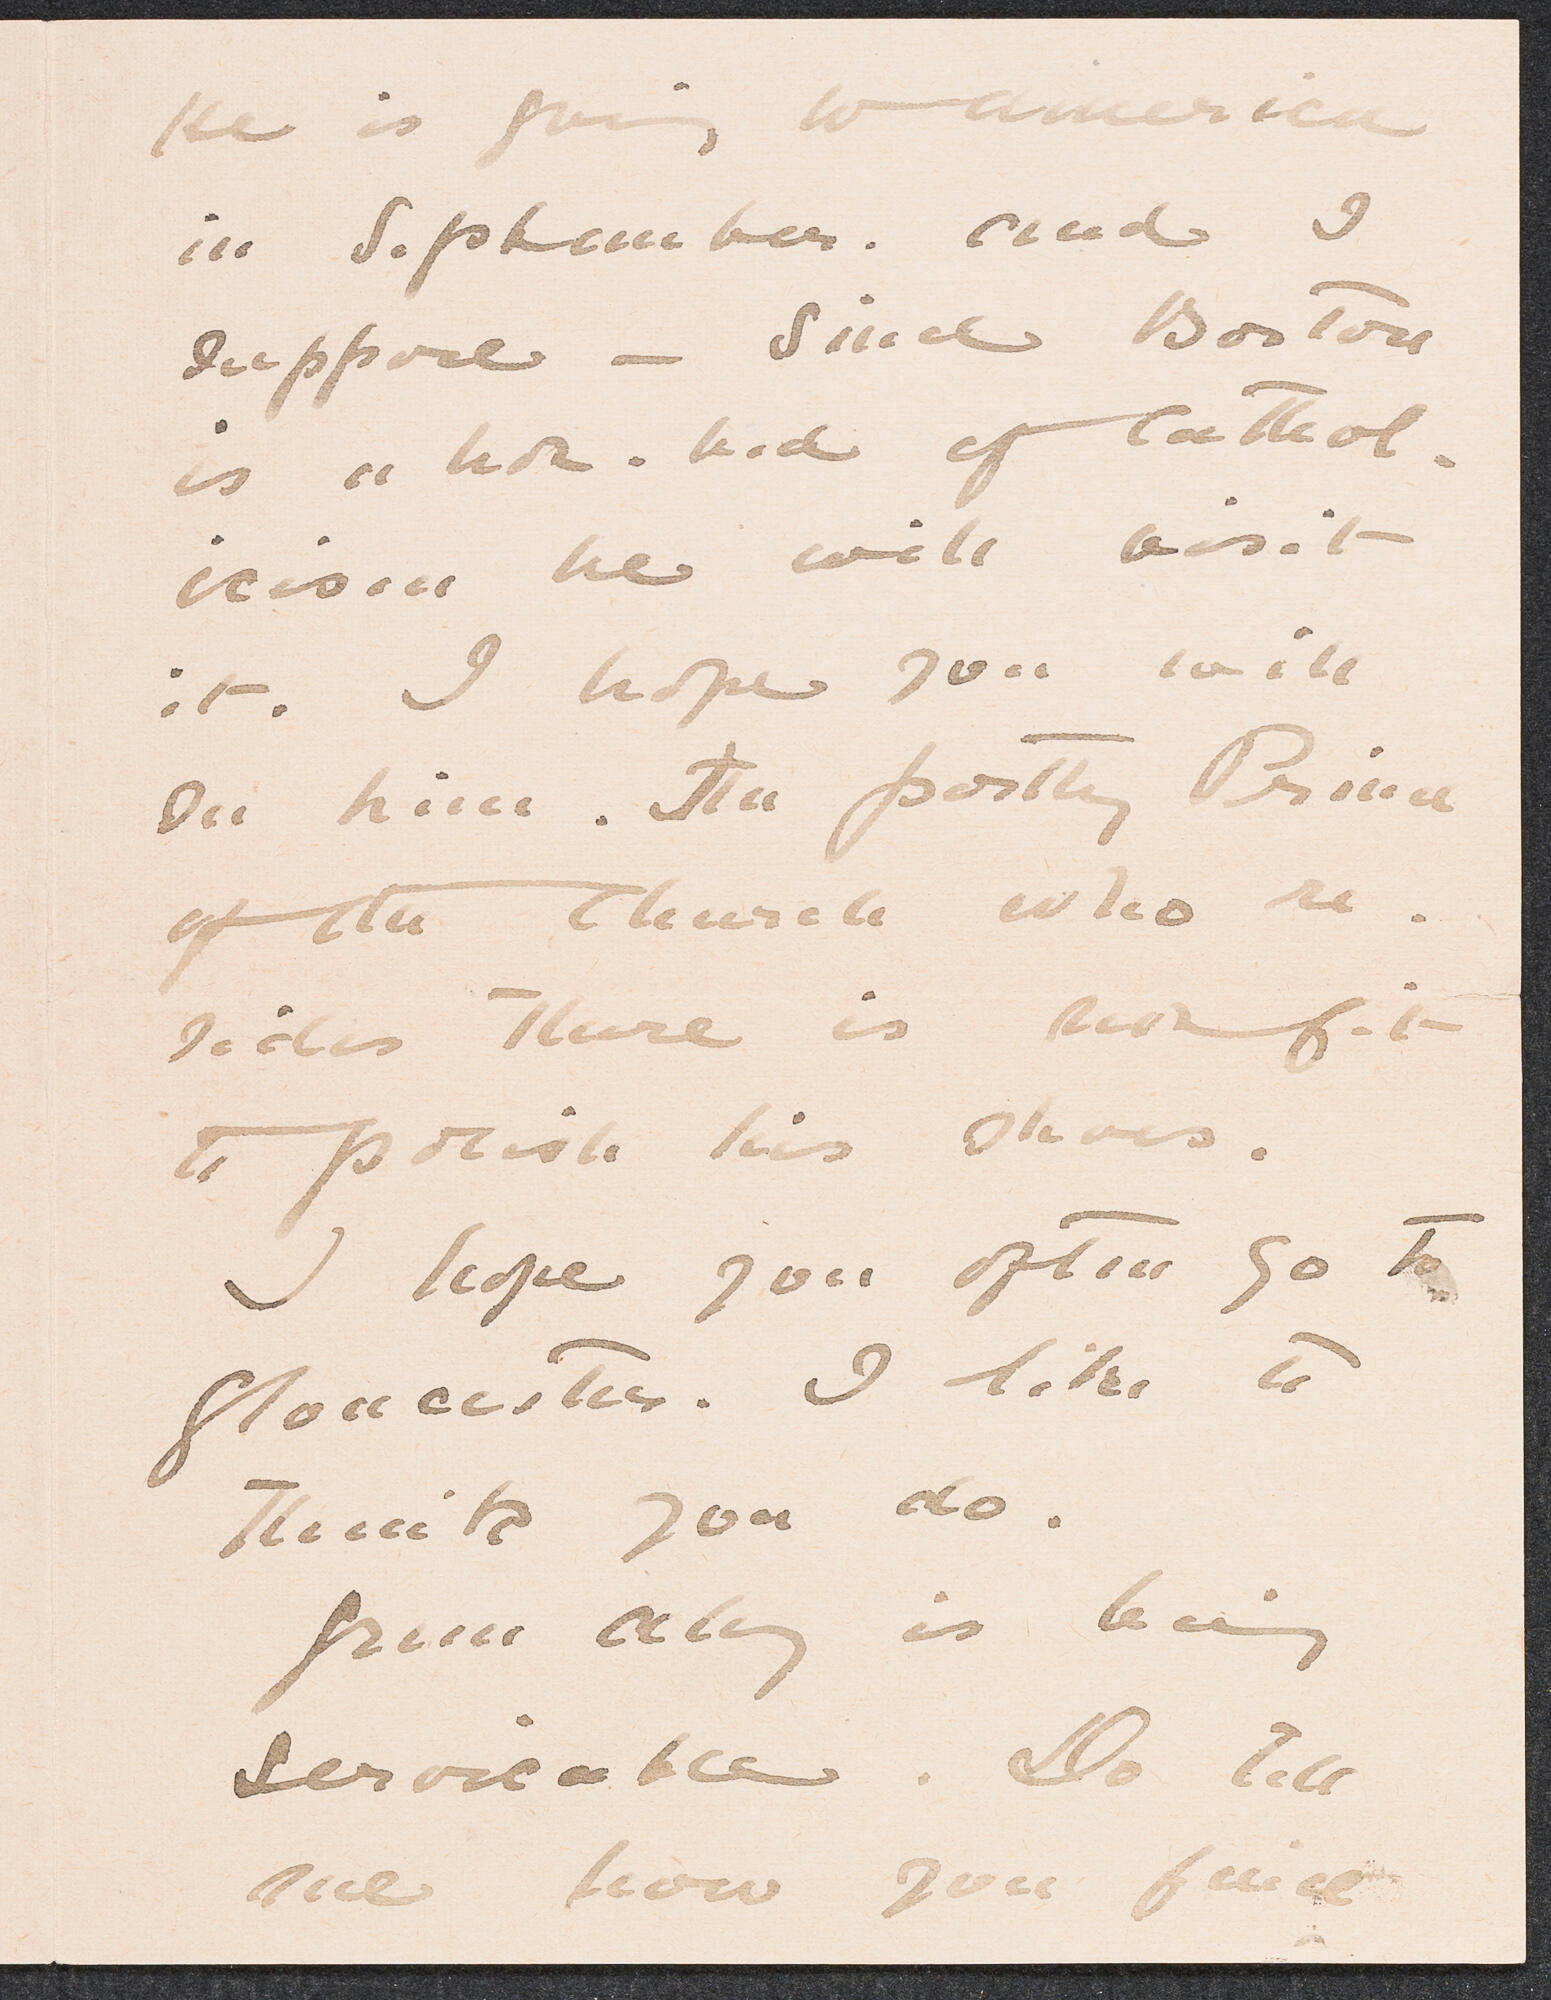 He is going to America
in September. and I
suppose — since Boston
is a hot-bed of Cathol-
icism he will visit
it. I hope you will
see him. The portly Prince
of the Church who re-
sides there is not fit
to polish his shoes.
I hope you often go to
Gloucester. I like to
think you do.
Grimalby is being
serviceable. Do tell
me how you find